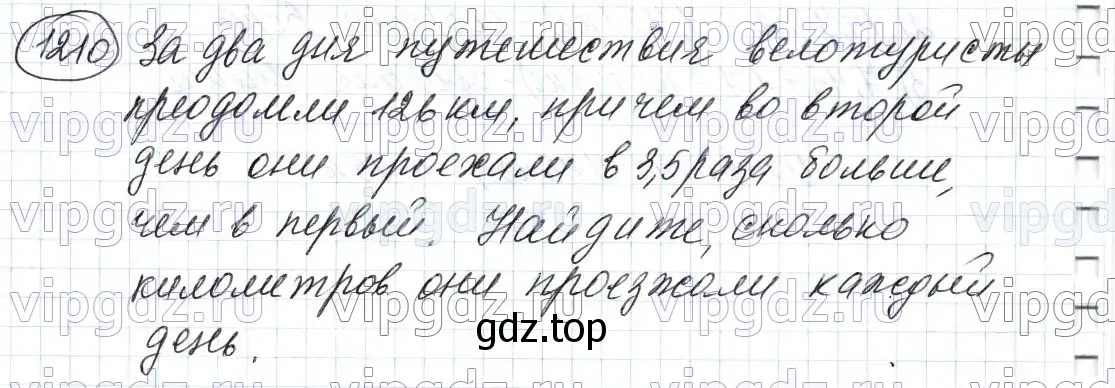 1210 За два дня путешествия велотуристы
преодомли 126 км, причем во второй
день они проехали в 3,5 раза больше,
чем в первый. Найдите, сколько
километров они проезжали каждый
день.
gdz.top